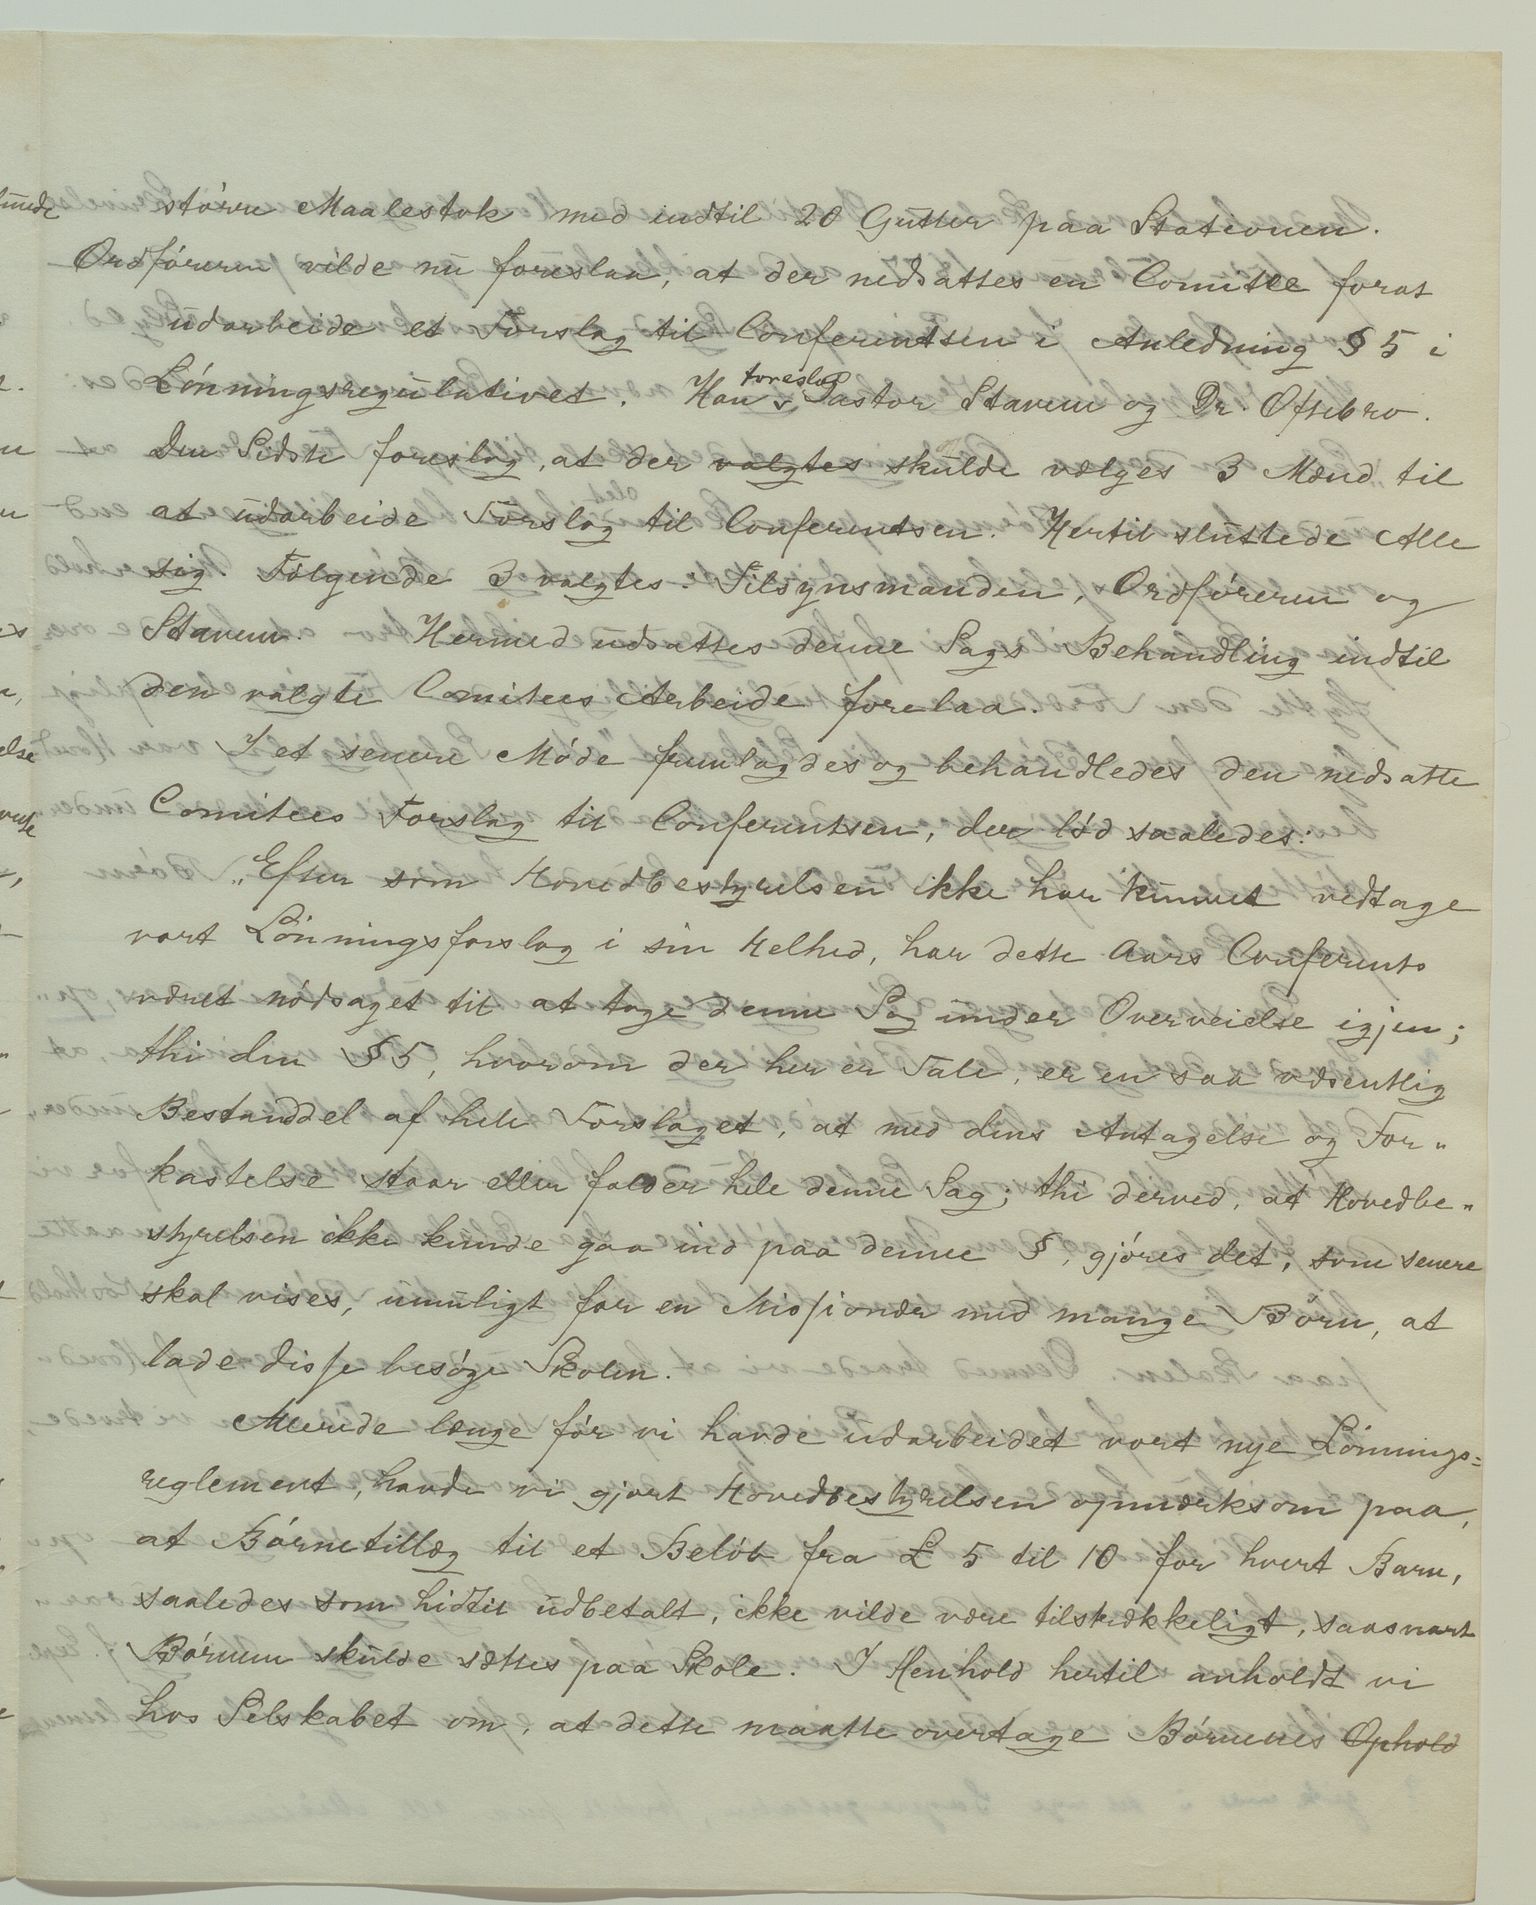 større Maalestok med indtil 20 Gutter paa Stationen.
Ordføreren vilde nu foreslaa, at der nedsattes en Comitee forat
udarbeide et Forslag til Conferentsen i Anledning § 5 i
Lønningsregulativet. Han foreslog Pastor Stavem og Dr. Oftebro.
Den Sidste foreslog, at der valgtes skulde vælges 3 Mænd til
at udarbeide Forslag til Conferentsen. Hertil sluttede Alle
sig. Følgende 3 valgtes: Tilsynsmanden, Ordføreren og
Stavem. Hermed udsattes denne Sags Behandling indtil
den valgte Comitees Arbeide forelaa.
I et senere Møde fremlagdes og behandledes den nedsatte
Comitees Forslag til Conferentsen, der lød saaledes:
„Efter som Hovedbestyrelsen ikke har kunnet vedtage
vort Lønningsforslag i sin Helhed, har dette Aars Conferents
været nødsaget til at tage denne Sag under Overveielse igjen;
thi den § 5, hvorom der her er Tale, er en saa væsentlig
Bestanddel af hele Forslaget, at med dens Antagelse og For„
kastelse staar eller falder hele denne Sag; thi derved, at Hovedbe„
styrelsen ikke kunde gaa ind paa denne §, gjøres det, som senere
skal vises, umuligt for en Missionær med mange Børn, at
lade disse besøge Skolen.
Allerede længe før vi havde udarbeidet vort nye Lønnings=
reglement, havde vi gjort Hovedbestyrelsen opmærksom paa,
at Børnetillæg til et Beløb fra £ 5 til 10 for hvert Barn,
saaledes som hidtil udbetalt, ikke vilde være tilstrækkeligt, saasnart
Børnene skulde sættes paa Skole. I Henhold hertil anholdt vi
hos Selskabet om, at dette maatte overtage Børnenes Ophold